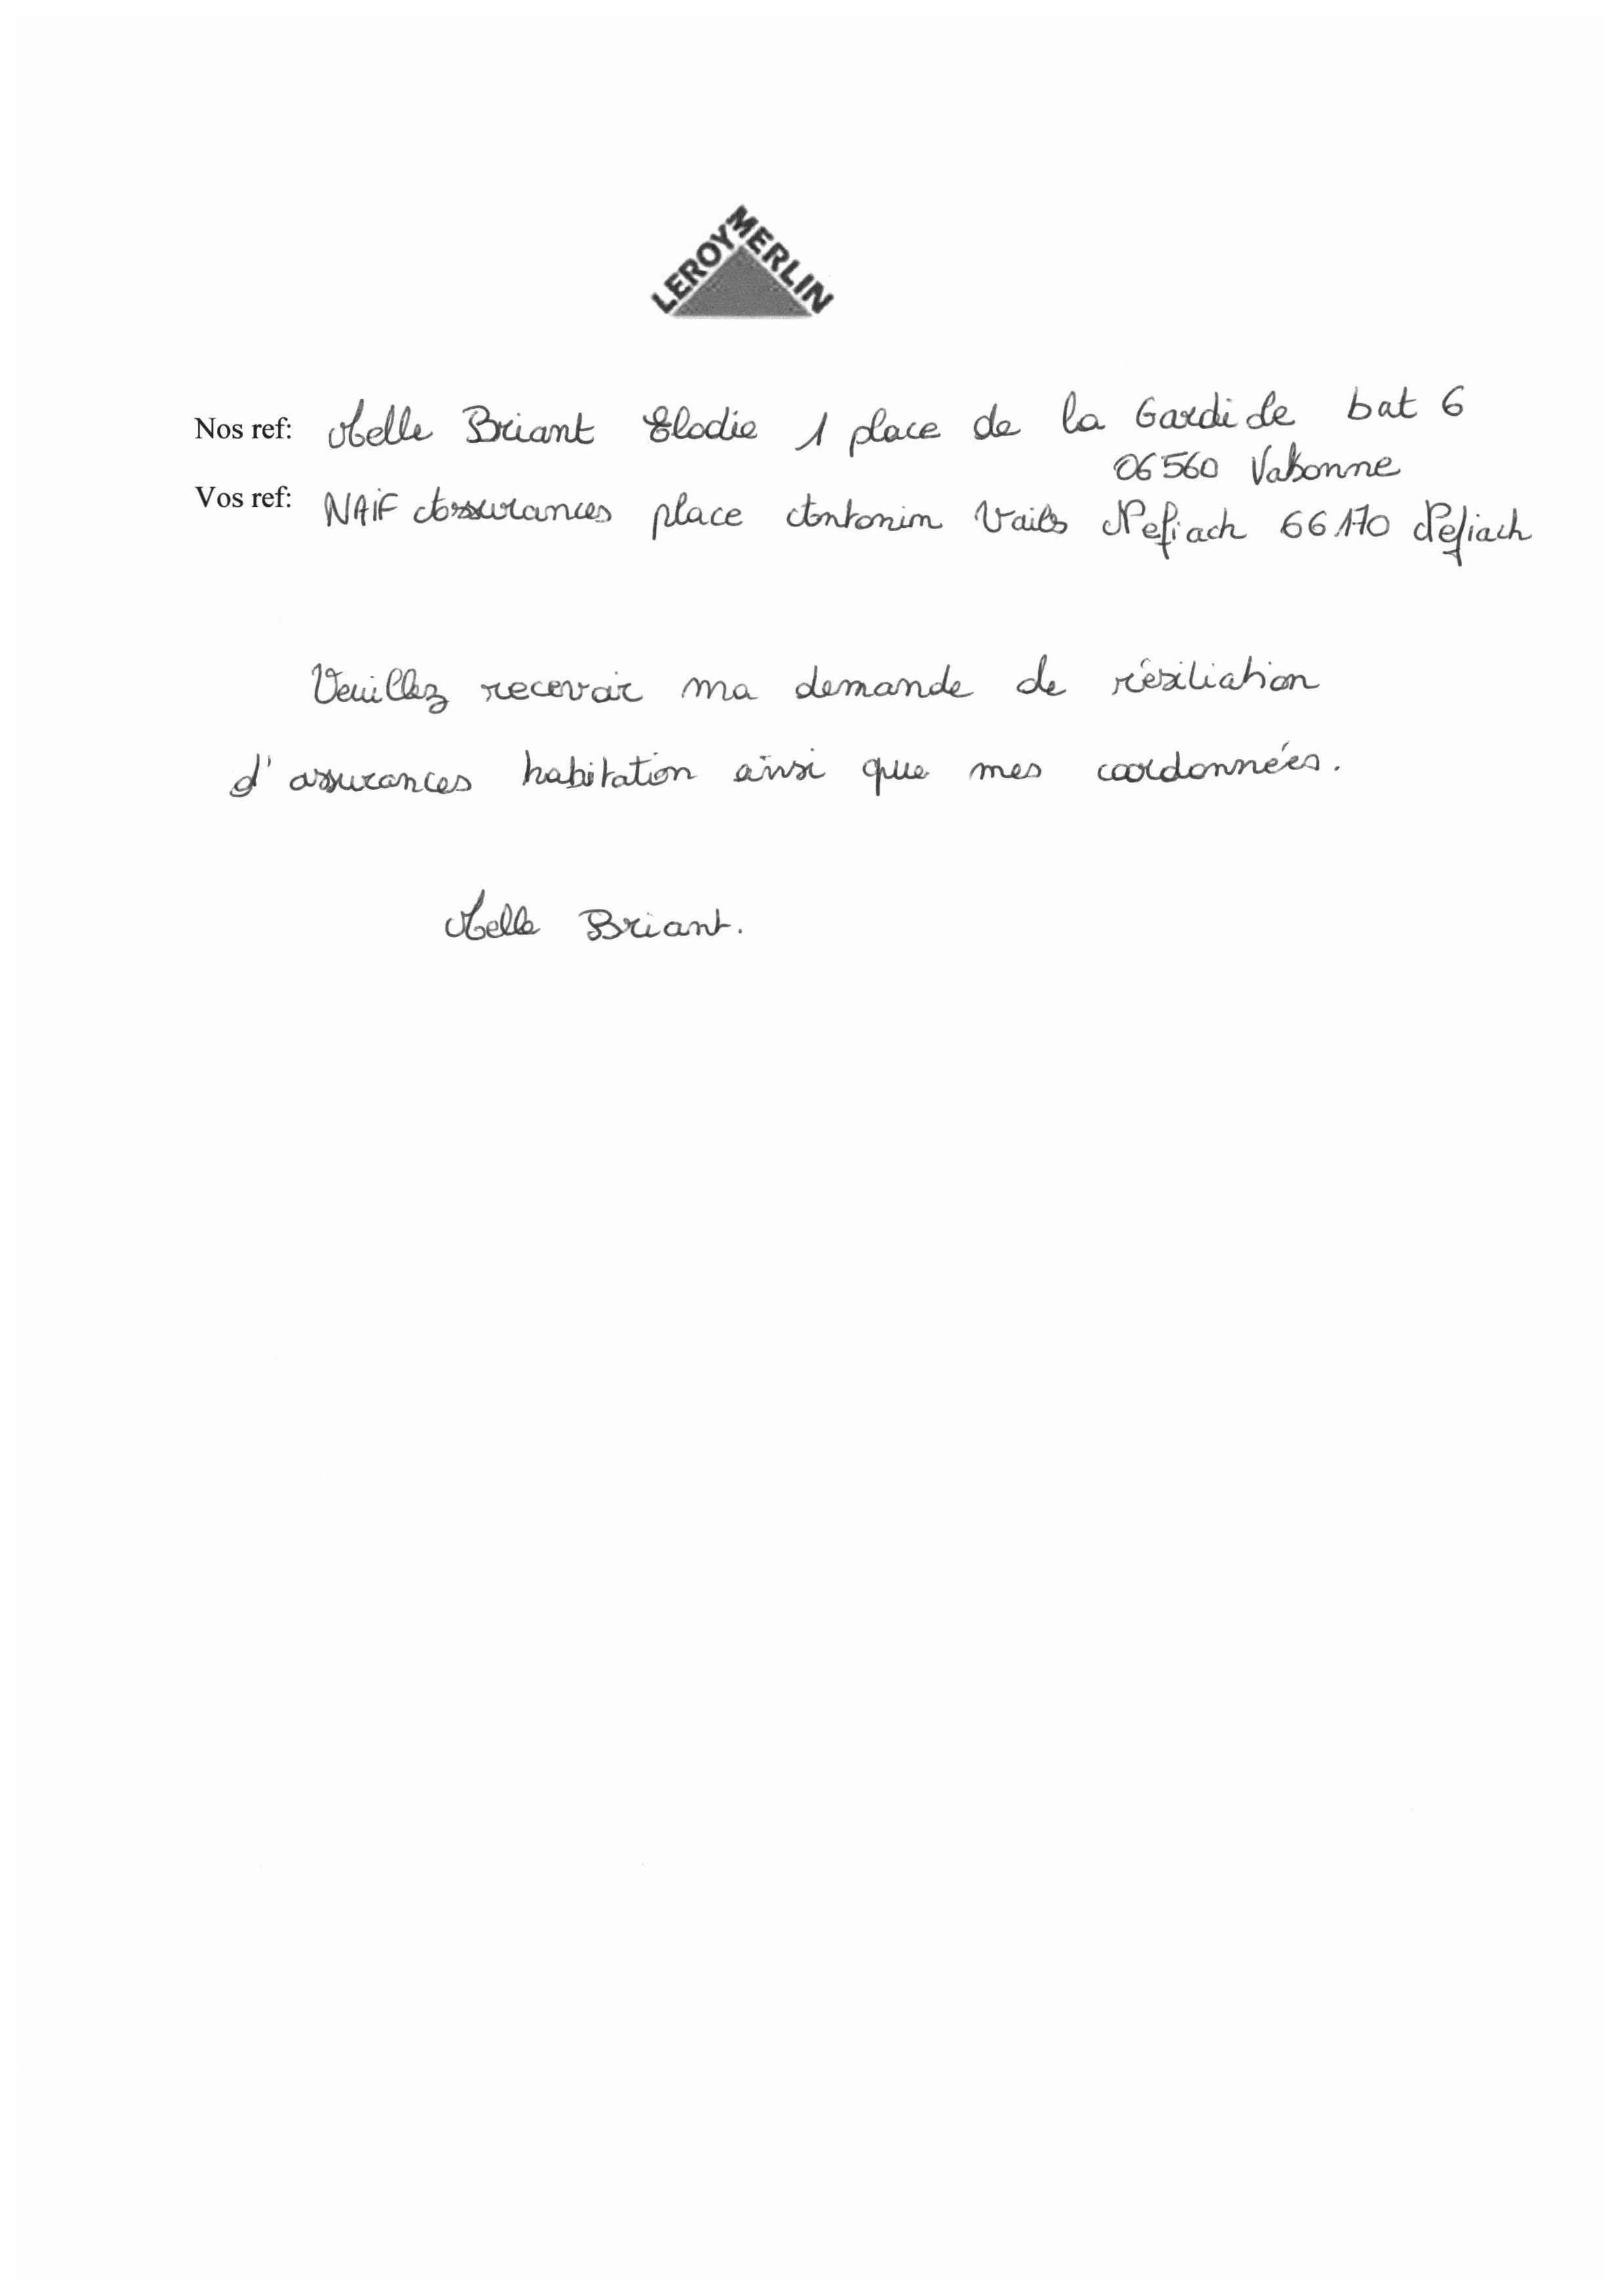 LEROY MERLIN
Nos ref: Melle Briant Elodie 1 place de la Gardide bat 6
06560 Valbonne
Vos ref: NAIF Assurances place Antonin Vails Nefiach 66170 Nefiach
Veuillez recevoir ma demande de résiliation
d'assurances habitation ainsi que mes coordonnées.
Melle Briant.